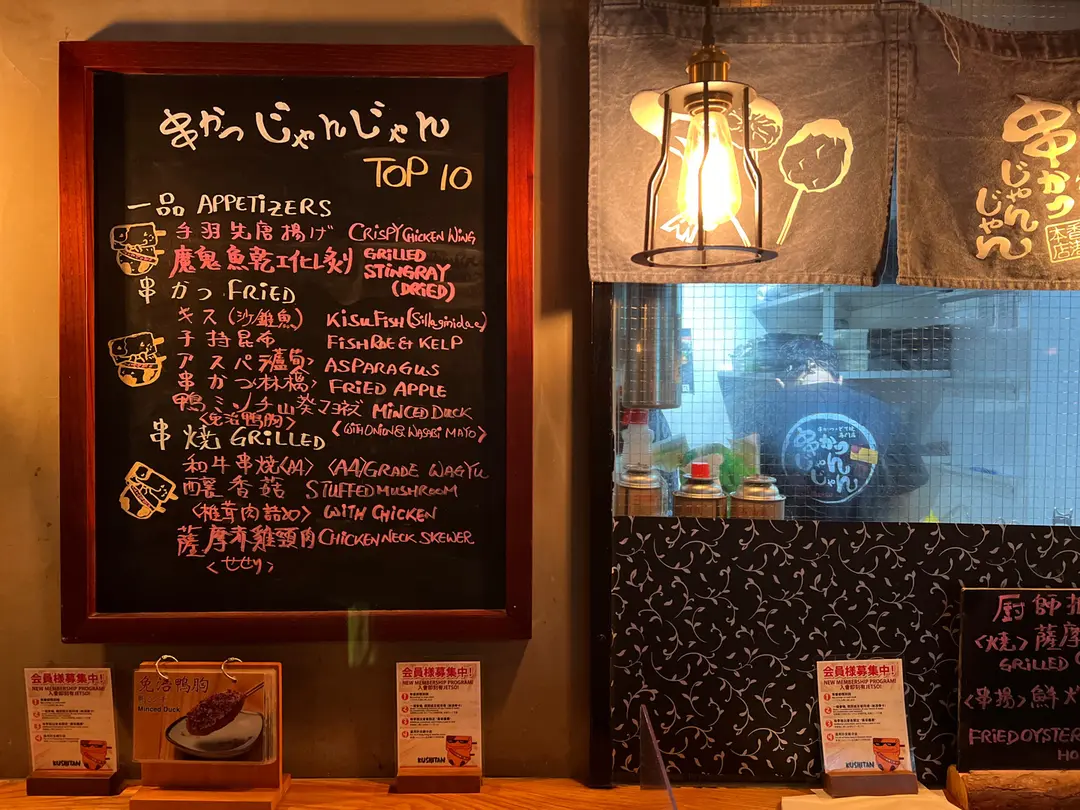 串かつ じゃんじゃん
TOP 10
一品 APPETIZERS
手羽先唐揚げ CRISPY CHICKEN WING
魔鬼魚乾エイヒレ炙り GRILLED STINGRAY (DRIED)
串かつ FRIED
キス(沙錐魚) KISU FISH (Sillaginidae)
子持昆布 FISH ROE & KELP
アスパラ ASPARAGUS
串かつ林檎 FRIED APPLE
鴨ミンチ山葵マヨネズ MINCED DUCK
<免治鴨胸> <WITH ONION & WASABI MAYO>
串焼 GRILLED
和牛串焼<A4> <A4>GRADE WAGYU
香菇 STUFFED MUSHROOM
<椎茸肉詰め> WITH CHICKEN
薩摩赤雞頸肉 CHICKEN NECK SKEWER
<せせり>
串かつ
じゃん
じゃん
香港
本店
串かつ
じゃん
じゃん
会員様募集中!
NEW MEMBERSHIP PROGRAM!
入會即刻有JETSO!
1
2
3
4
KUSHITAN
免治鴨胸
Minced Duck
会員様募集中!
NEW MEMBERSHIP PROGRAM!
入會即刻有JETSO!
1
2
3
4
KUSHITAN
会員様募集中!
NEW MEMBERSHIP PROGRAM!
入會即刻有JETSO!
1
2
3
4
KUSHITAN
厨師
<焼> 薩摩
GRILLED
<串揚> 鮮
FRIED OYSTER